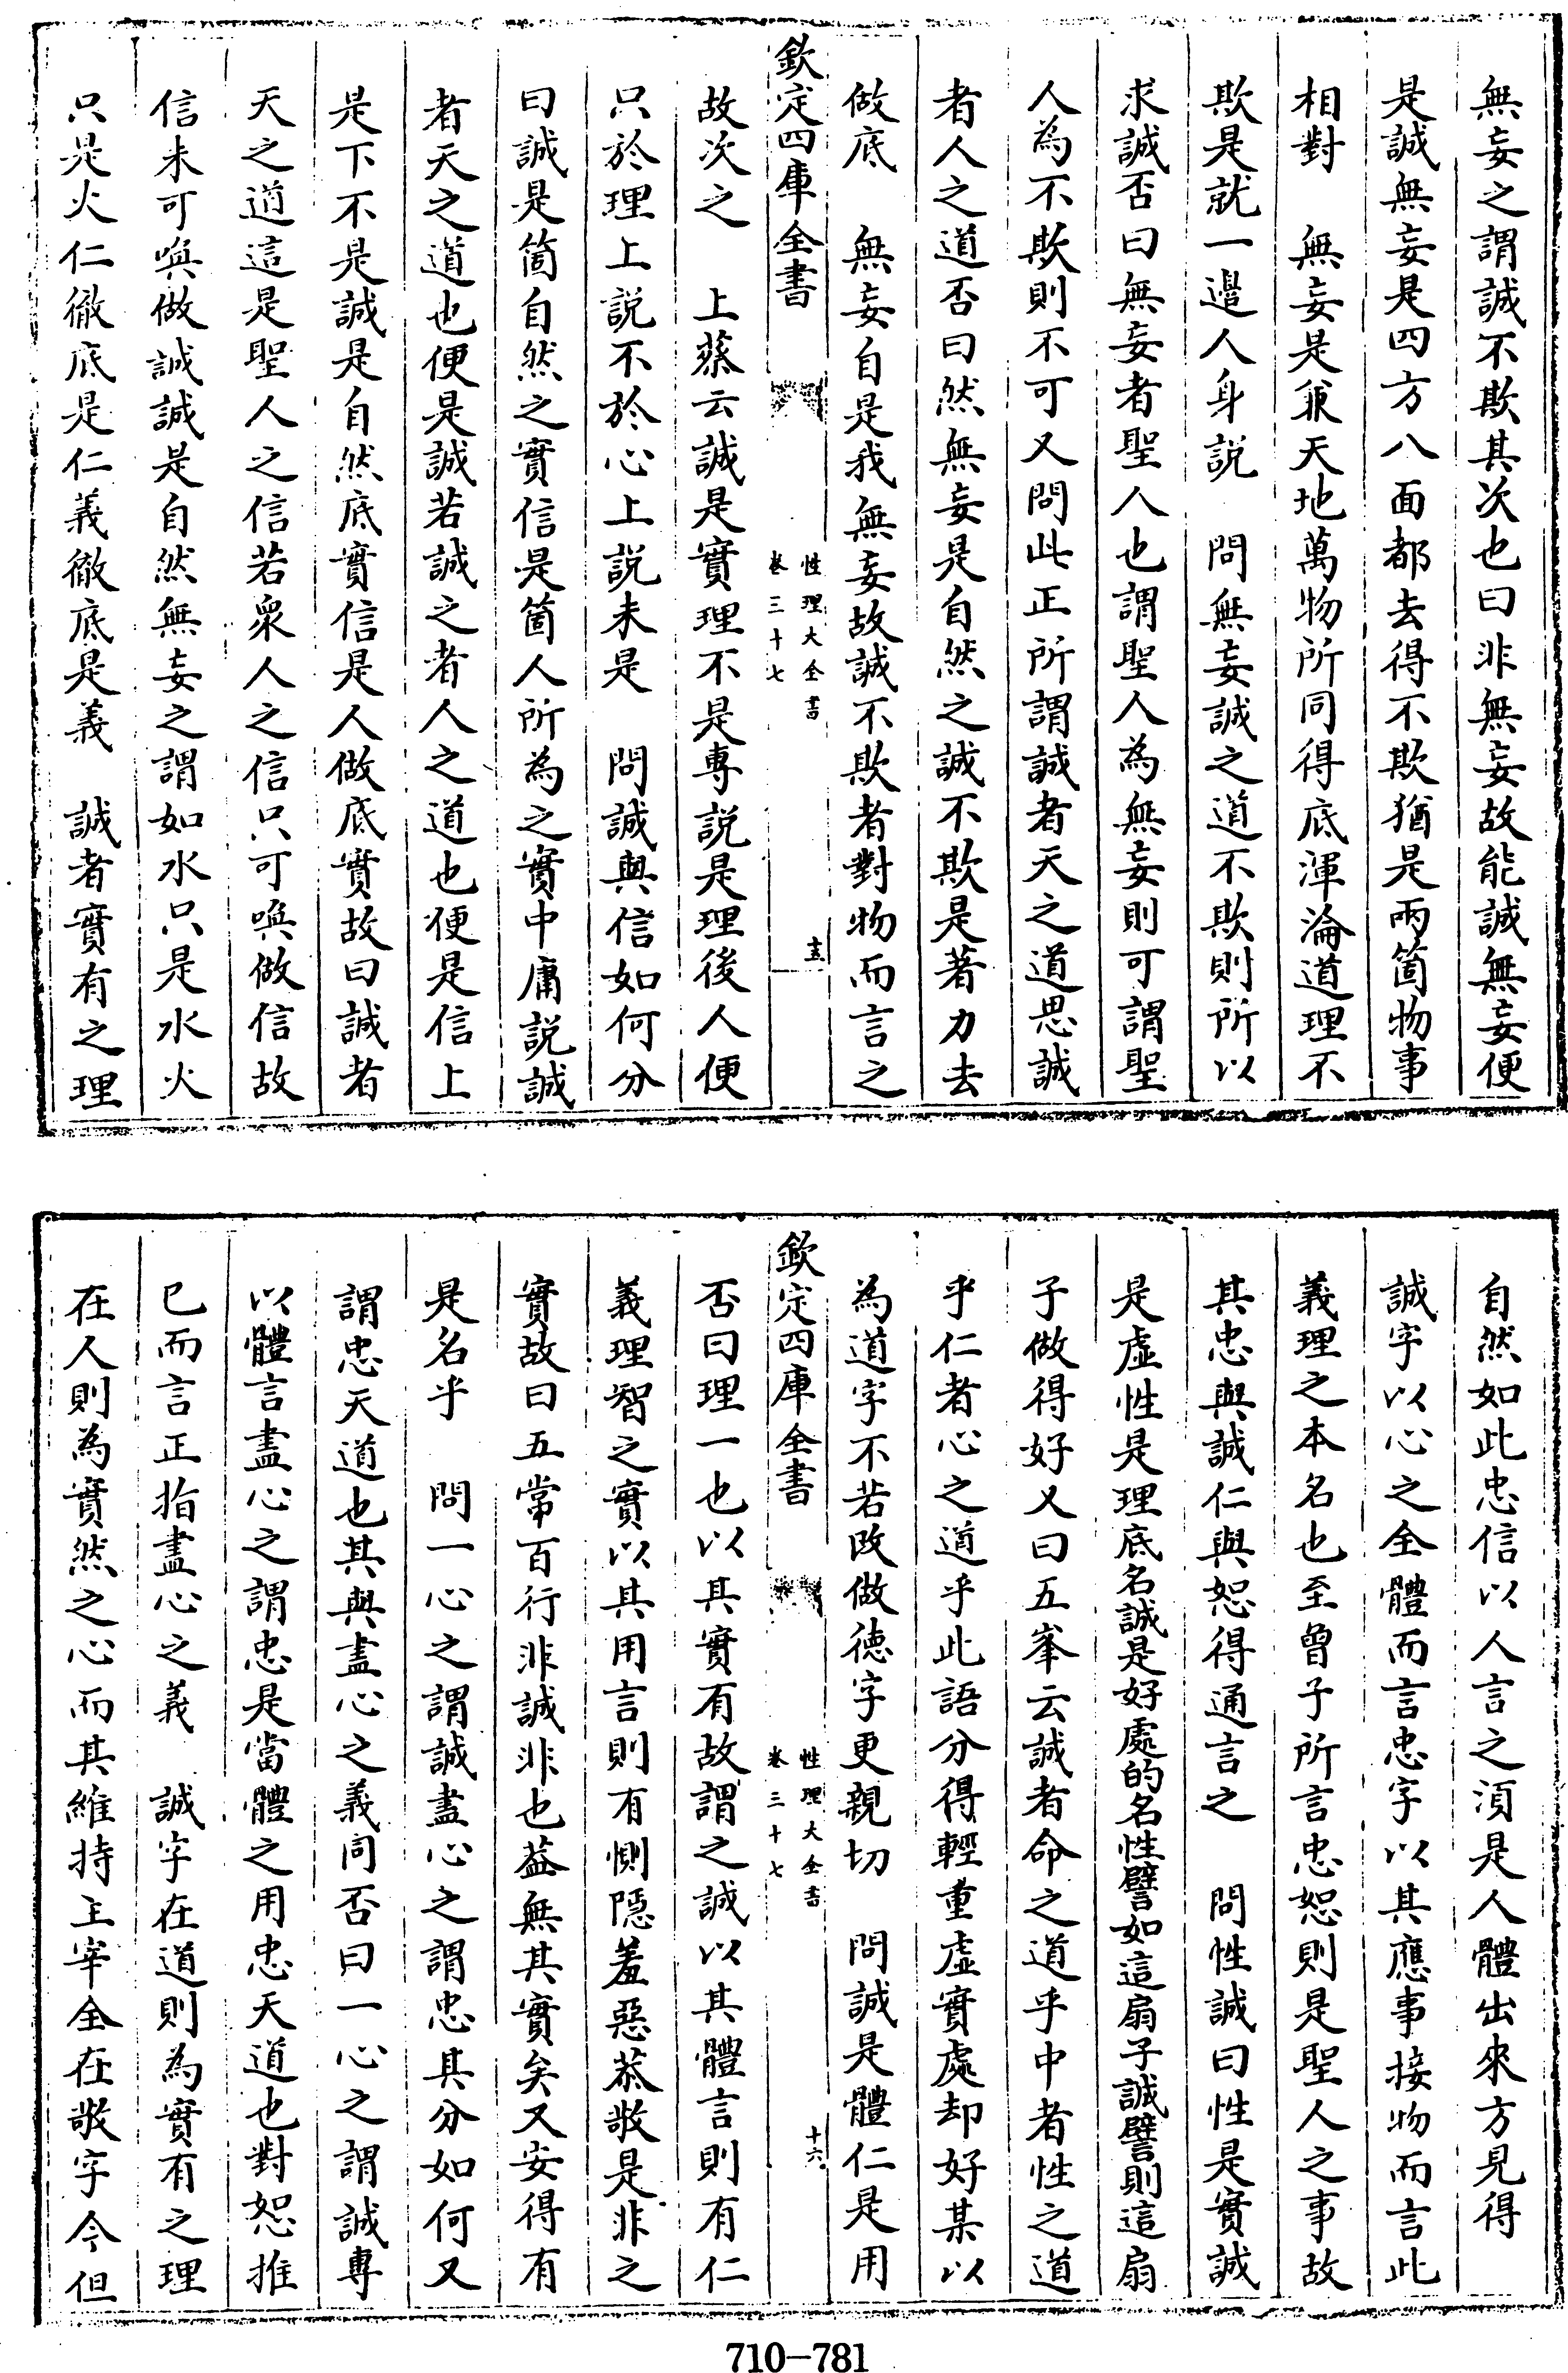 無妄之謂誠不欺其次也曰非無妄故能誠無妄便
是誠無妄是四方八面都去得不欺猶是兩箇物事
相對　無妄是兼天地萬物所同得底渾淪道理不
欺是就一邊人身説　問無妄誠之道不欺則所以
求誠否曰無妄者聖人也謂聖人為無妄則可謂聖
人為不欺則不可又問此正所謂誠者天之道思誠
者人之道否曰然無妄是自然之誠不欺是著力去
做底　無妄自是我無妄故誠不欺者對物而言之
欽定四庫全書
性理大全書
卷三十七
十五
故次之　上蔡云誠是實理不是專説是理後人便
只於理上説不於心上説未是　問誠與信如何分
曰誠是箇自然之實信是箇人所為之實中庸説誠
者天之道也便是誠若誠之者人之道也便是信上
是下不是誠是自然底實信是人做底實故曰誠者
天之道這是聖人之信若衆人之信只可喚做信故
信未可喚做誠誠是自然無妄之謂如水只是水火
只是火仁徹底是仁義徹底是義　誠者實有之理
自然如此忠信以人言之須是人體出來方見得
誠字以心之全體而言忠字以其應事接物而言此
義理之本名也至曾子所言忠恕則是聖人之事故
其忠與誠仁與恕得通言之　問性誠曰性是實誠
是虛性是理底名誠是好處的名性譬如這扇子誠譬則這扇
子做得好又曰五峯云誠者命之道乎中者性之道
乎仁者心之道乎此語分得輕重虛實處却好某以
為道字不若改做德字更親切　問誠是體仁是用
欽定四庫全書
性理大全書
卷三十七
十六
否曰理一也以其實有故謂之誠以其體言則有仁
義理智之實以其用言則有惻隠羞惡恭敬是非之
實故曰五常百行非誠非也葢無其實矣又安得有
是名乎　問一心之謂誠盡心之謂忠其分如何又
謂忠天道也其與盡心之義同否曰一心之謂誠專
以體言盡心之謂忠是當體之用忠天道也對恕推
已而言正指盡心之義　誠字在道則為實有之理
在人則為實然之心而其維持主宰全在敬字今但
710－781